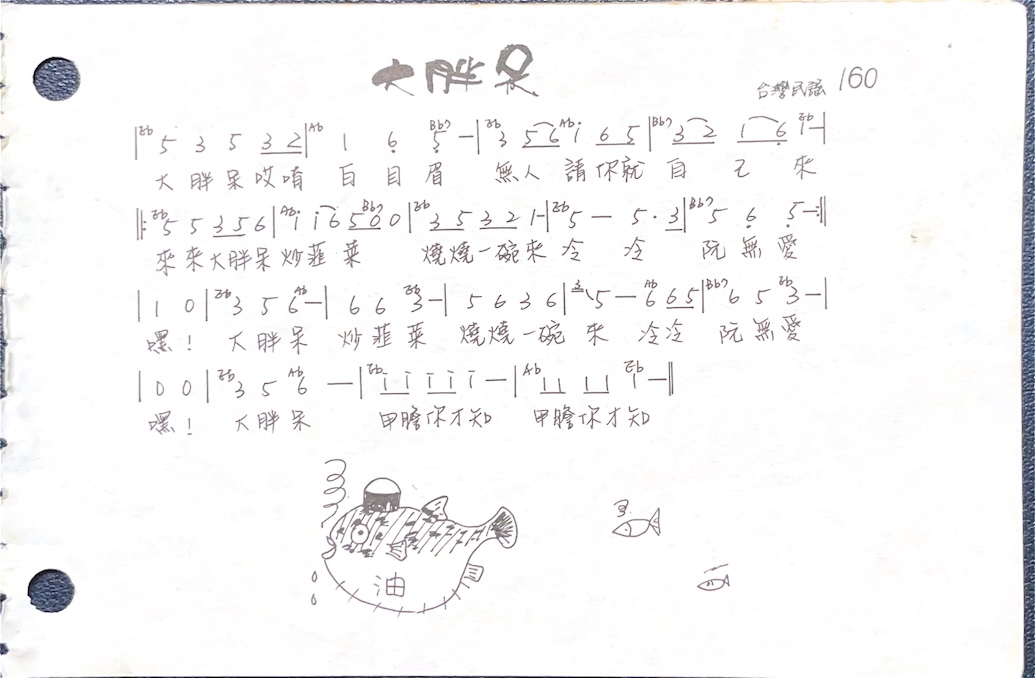 大胖呆
台灣民謠 160
|Eb 5 3 5 3 2|Ab 1 6 Bb7 5 —|Eb 3 5 6 Ab i 6 5|Bb7 3 2 1 6 Eb 1 —|
大胖呆哎唷 白目眉 無人請你就自己來
‖: Eb 5 5 3 5 6|Ab i i 6 5 Bb7 0 0|Eb 3 5 3 2 1 -|Eb 5 — 5 · 3|Bb7 5 6 5 —:‖
來來大胖呆炒韮菜 燒燒一碗來冷 冷 阮無愛
|1 0|Eb 3 5 6 Ab —|6 6 Eb 3 —|5 6 3 6|3 5 — Ab 6 6 5|Bb7 6 5 Eb 3 —|
嘿! 大胖呆 炒韮菜 燒燒一碗 來 冷冷 阮無愛
|0 0|Eb 3 5 Ab 6 —|Eb i i i i i —|Ab 1 1 1 1 Eb 1 —‖
嘿! 大胖呆 甲膽你才知 甲膽你才知
油